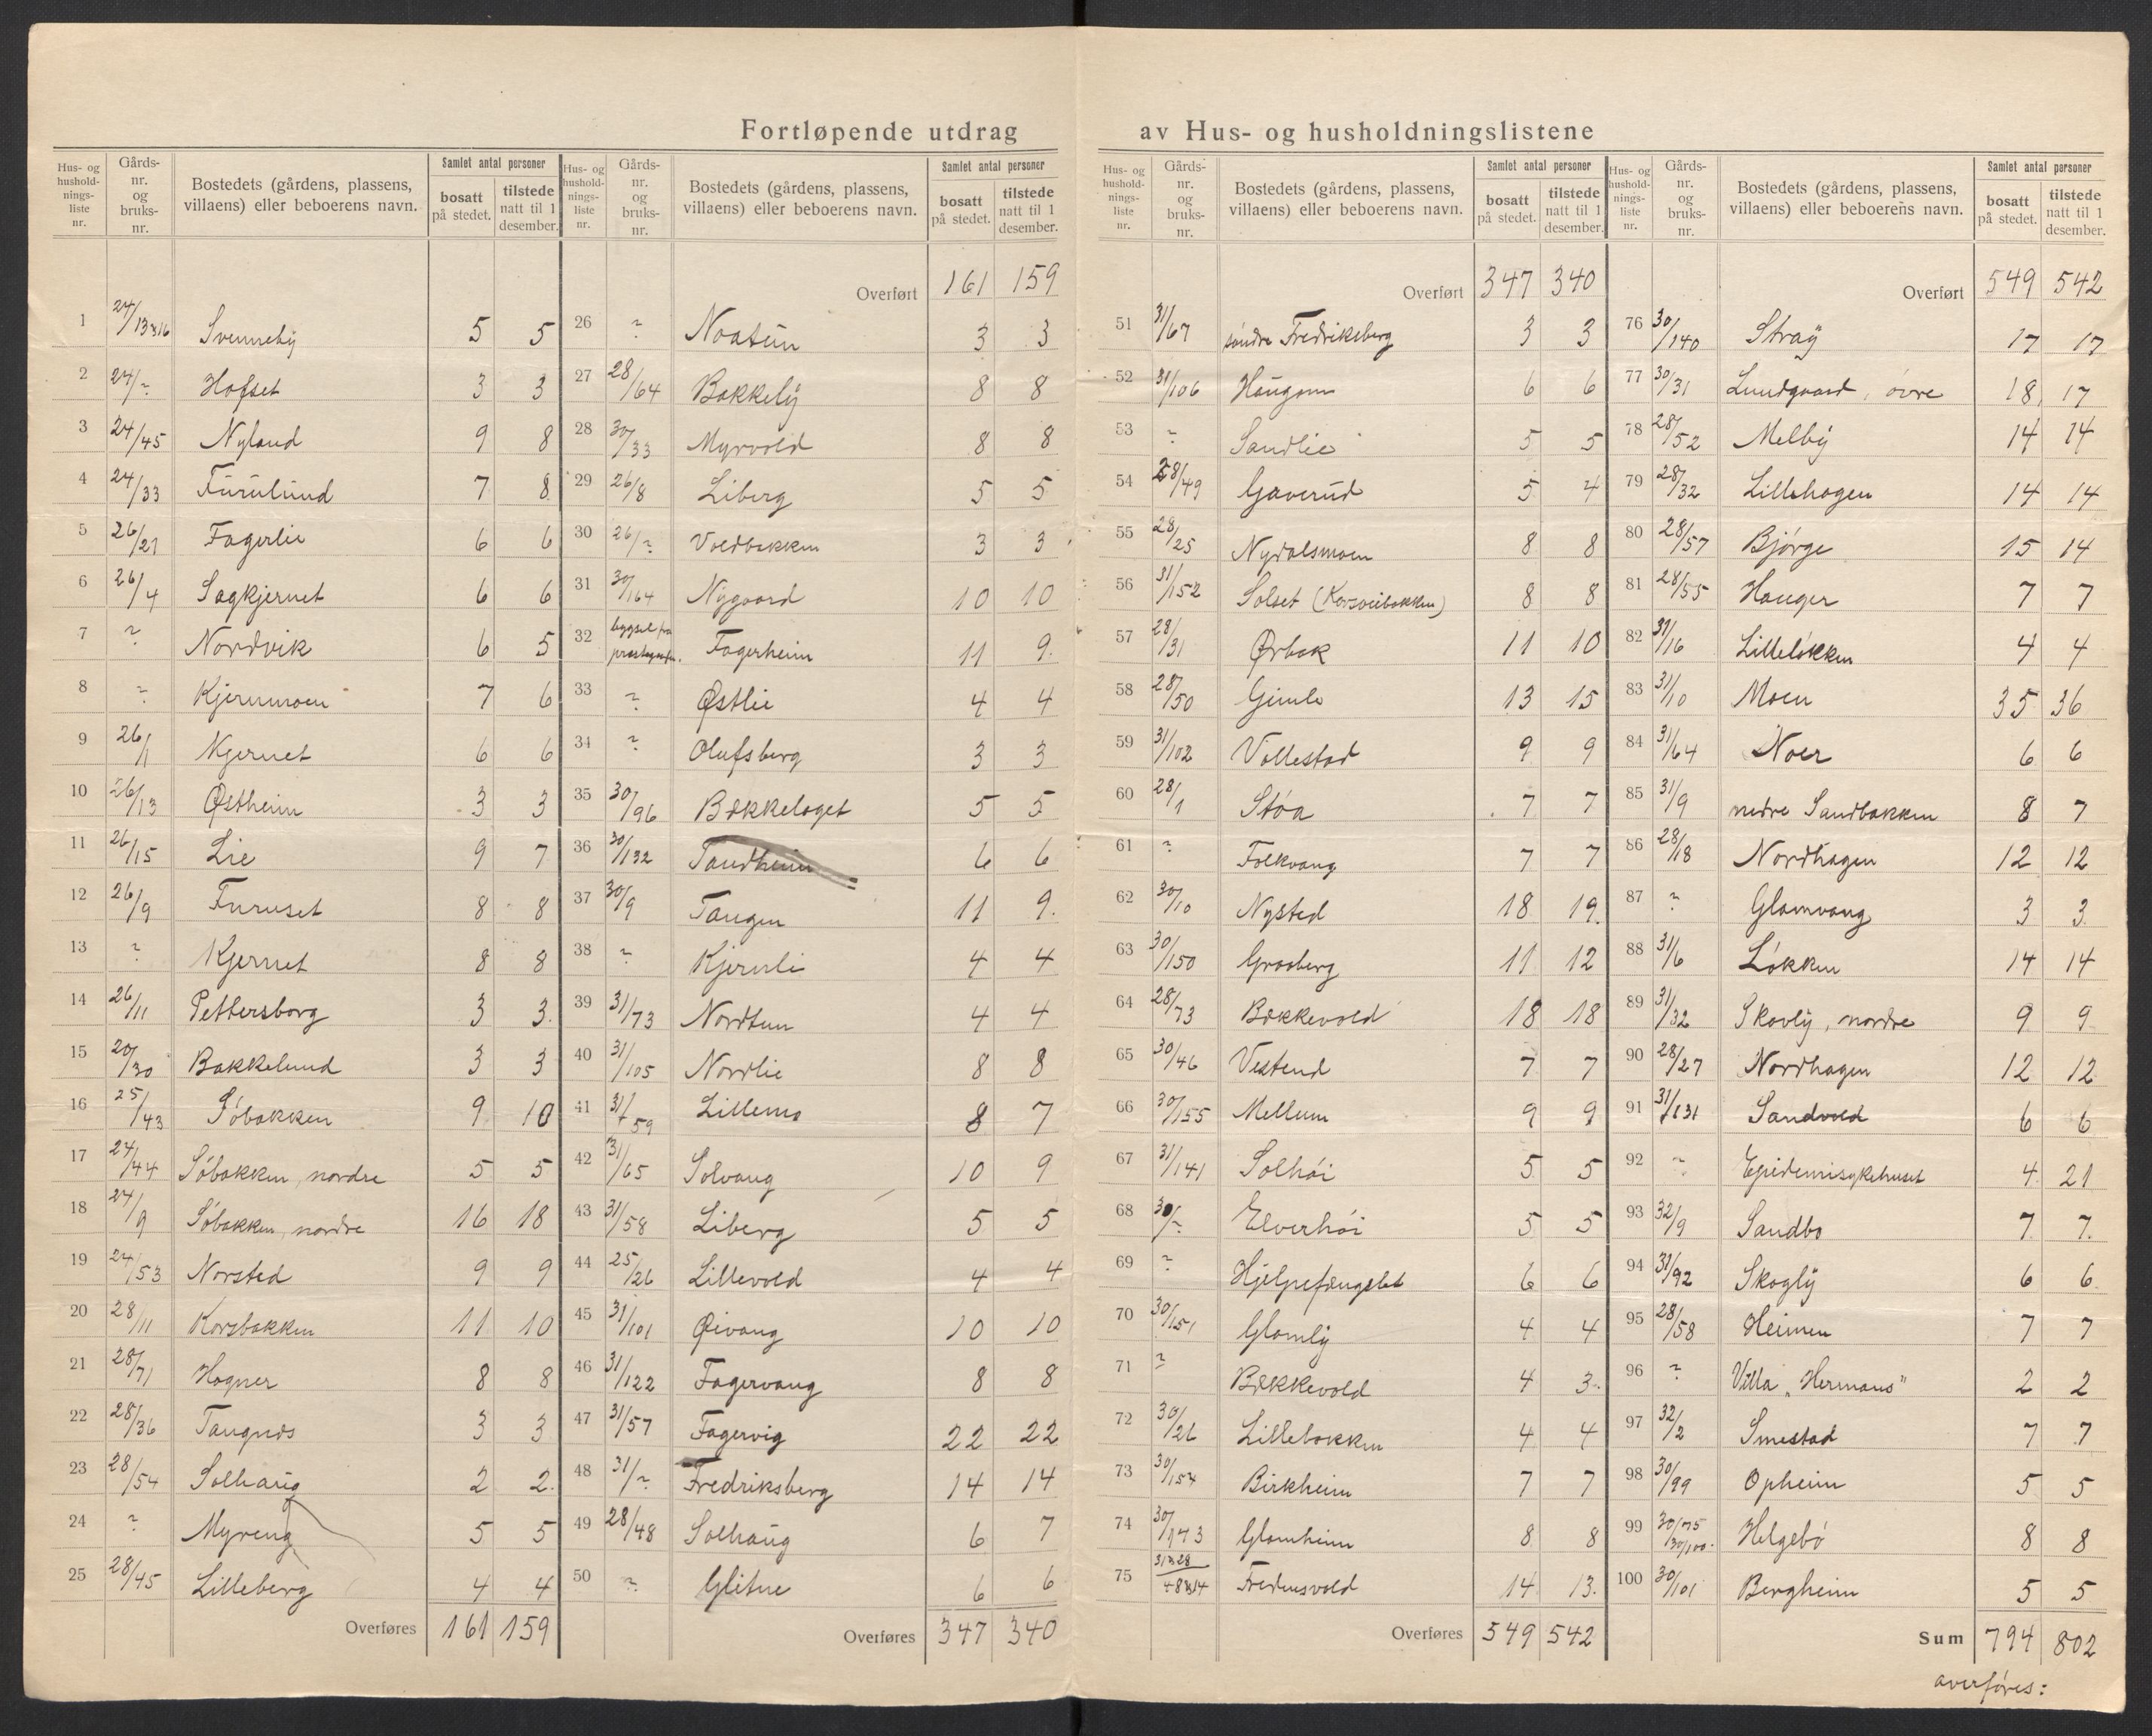 Fortløpende utdrag av Hus- og husholdningslistene
Hus- og husholdningsliste nr. | Gårdsnr. og bruksnr. | Bostedets (gårdens, plassens, villaens) eller beboerens navn. | Samlet antal personer bosatt på stedet. | tilstede natt til 1 desember.
1 24/13&16 Svenneby 5 5
2 24/? Hofset 3 3
3 24/45 Nyland 9 8
4 24/33 Furulund 7 8
5 26/21 Fagerlie 6 6
6 26/4 Sagkjernet 6 6
7 ? Nordvik 6 5
8 ? Kjernmoen 7 6
9 26/1 Kjernet 6 6
10 26/13 Østheim 3 3
11 26/15 Lie 9 7
12 26/9 Furuset 8 8
13 ? Kjernet 8 8
14 26/11 Pettersborg 3 3
15 20/30 Bakkelund 3 3
16 25/43 Søbakken 9 10
17 24/44 Søbakken, nordre 5 5
18 24/9 Søbakken, nordre 16 18
19 24/53 Norsted 9 9
20 28/11 Korsbakken 11 10
21 28/71 Hagner 8 8
22 28/36 Tangnes 3 3
23 28/54 Solhaug 2 2
24 ? Myreng 5 5
25 28/45 Lilleberg 4 4
Overføres 161 159
Hus- og husholdningsliste nr. | Gårdsnr. og bruksnr. | Bostedets (gårdens, plassens, villaens) eller beboerens navn. | Samlet antal personer bosatt på stedet. | tilstede natt til 1 desember.
Overført 161 159
26 ? Noatun 3 3
27 28/64 Bakkely 8 8
28 30/33 Myrvold 8 8
29 26/8 Liberg 5 5
30 26/? Voldbakken 3 3
31 30/164 Nygaard 10 10
32 bygsel fra Fagerheim 11 9
33 ? Østlie 4 4
34 ? Olufsberg 3 3
35 30/96 Bækkelaget 5 5
36 30/132 Sandheim 6 6
37 30/9 Tangen 11 9
38 ? Kjernli 4 4
39 31/73 Nordtun 4 4
40 31/105 Nordlie 8 8
41 31/59 Lillemo 8 7
42 31/65 Solvang 10 9
43 31/58 Liberg 5 5
44 25/26 Lillevold 4 4
45 31/101 Øivang 10 10
46 31/122 Fagervang 8 8
47 31/57 Fagervig 22 22
48 31/? Fredriksberg 14 14
49 28/48 Solhaug 6 7
50 ? Glitne 6 6
Overføres 347 340
Hus- og husholdningsliste nr. | Gårdsnr. og bruksnr. | Bostedets (gårdens, plassens, villaens) eller beboerens navn. | Samlet antal personer bosatt på stedet. | tilstede natt til 1 desember.
Overført 347 340
51 31/67 søndre Fredriksberg 3 3
52 31/106 Haugom 6 6
53 ? Sandlie 5 5
54 28/49 Gaverud 5 4
55 28/25 Nydalsmoen 8 8
56 31/152 Solset (Korsveibakken) 8 8
57 28/31 Ørbak 11 10
58 28/50 Gimle 13 15
59 31/102 Vollestad 9 9
60 28/1 Støa 7 7
61 ? Folkvang 7 7
62 30/10 Nysted 18 19
63 30/150 Graaberg 11 12
64 28/73 Bækkevold 18 18
65 30/46 Vestend 7 7
66 30/155 Mellum 9 9
67 31/141 Solhøi 5 5
68 30/? Elverhøi 5 5
69 ? Hjelpefængslet 6 6
70 30/151 Glomly 4 4
71 ? Bækkevold 4 3
72 30/26 Lillebakken 4 4
73 30/154 Birkheim 7 7
74 30/173 Glomheim 8 8
75 Fredensvold 14 13
Overføres 549 542
Hus- og husholdningsliste nr. | Gårdsnr. og bruksnr. | Bostedets (gårdens, plassens, villaens) eller beboerens navn. | Samlet antal personer bosatt på stedet. | tilstede natt til 1 desember.
Overført 549 542
76 30/140 Stray 17 17
77 30/31 Lundgaard, øvre 18 17
78 28/52 Melby 14 14
79 28/32 Lillehagen 14 14
80 28/57 Bjørge 15 14
81 28/55 Hauger 7 7
82 31/16 Lilleløkken 4 4
83 31/10 Moen 35 36
84 31/64 Noer 6 6
85 31/9 nedre Sandbakken 8 7
86 28/18 Nordhagen 12 12
87 ? Glomvang 3 3
88 31/6 Løkken 14 14
89 31/32 Skovly, nordre 9 9
90 28/27 Nordhagen 12 12
91 31/131 Sandvold 6 6
92 ? Epidemisykehuset 4 21
93 32/9 Sandbo 7 7
94 31/92 Skogly 6 6
95 28/58 Heimen 7 7
96 ? Villa „Hermans" 2 2
97 32/2 Smestad 7 7
98 30/99 Opheim 5 5
99 30/75 30/100 Helgebø 8 8
100 30/101 Bergheim 5 5
Sum 794 802
overføres: